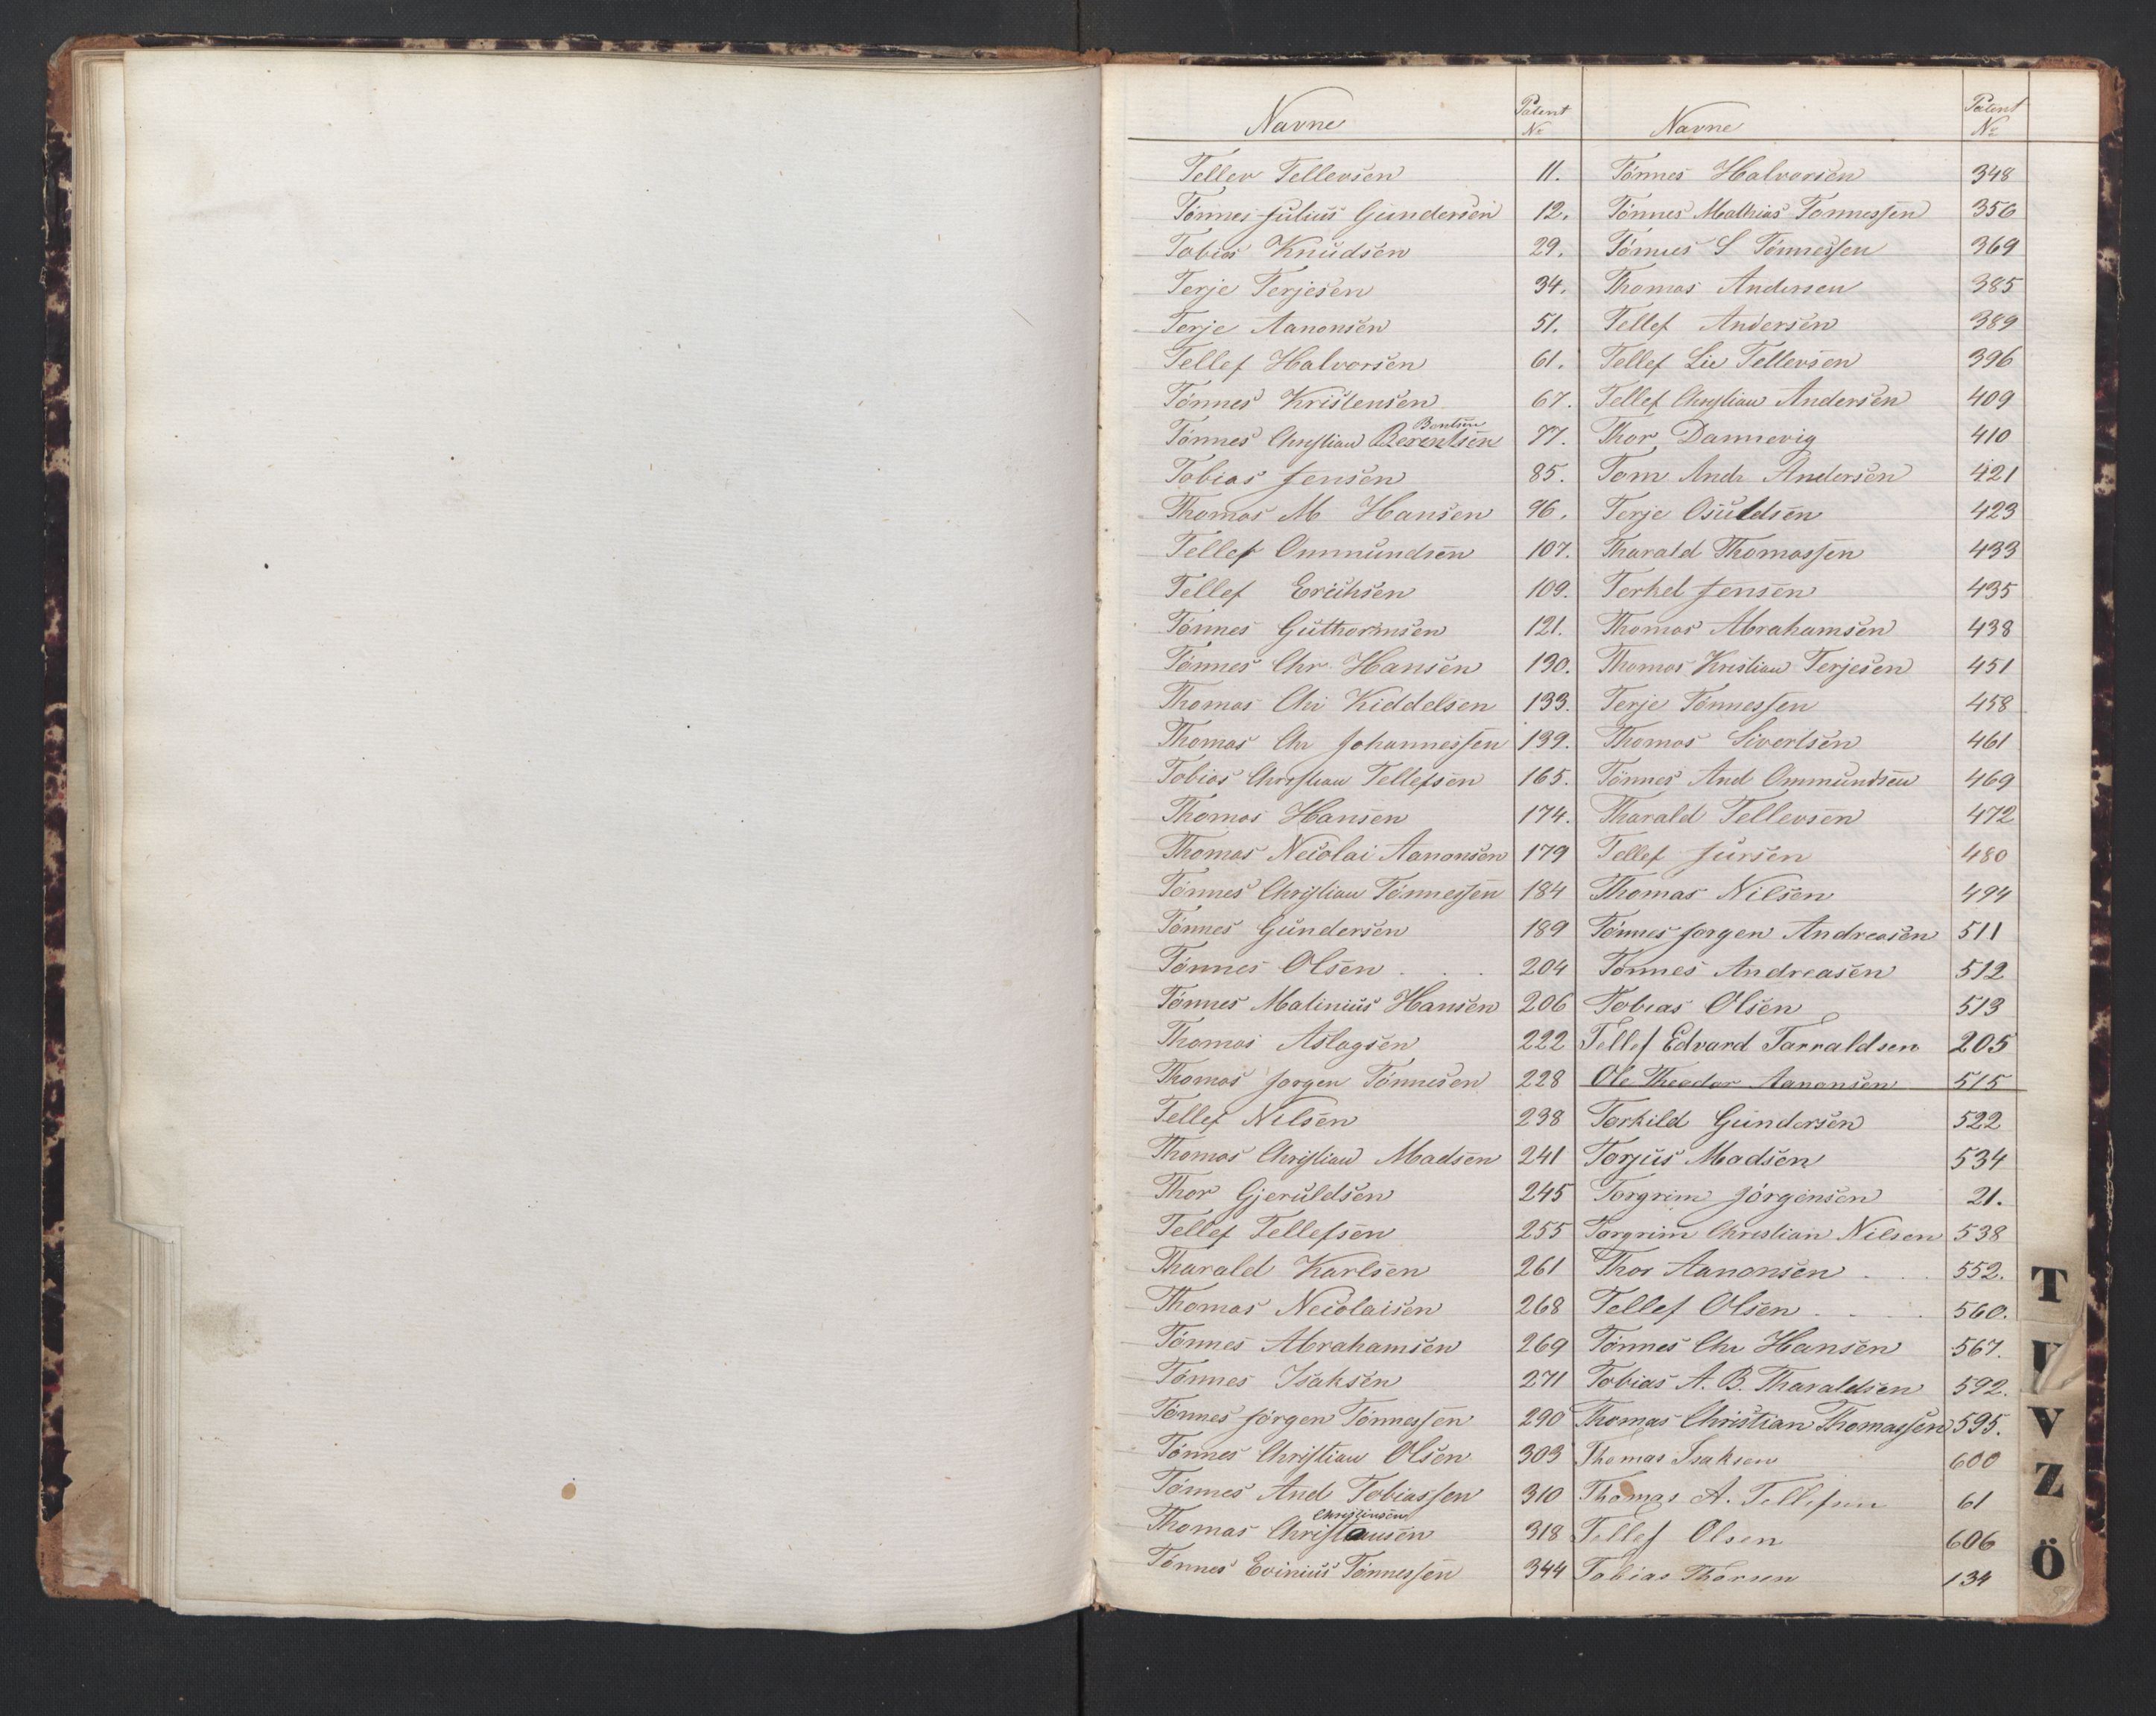 Navne Patent No Navne Patent No
Tellev Tellevsen 11. Tönnes Halvorsen 348
Tönnes Julius Gundersen 12. Tönnes Mathias Tönnessen 356
Tobias Knudsen 29. Tönnes S Tönnessen 369
Terje Terjesen 34. Thomas Andersen 385
Terje Aanonsen 51. Tellef Andersen 389
Tellef Halvorsen 61. Tellef Lie Tellevsen 396
Tönnes Kristensen 67. Tellef Christian Andersen 409
Bentsen
Tönnes Christian Berentsen 77. Thor Dannevig 410
Tobias Jensen 85. Tom Andr Andersen 421
Thomas M Hansen 96. Terje Osuldsen 423
Tellef Ommundsen 107. Tharald Thomassen 433
Tellef Erichsen 109. Terkel Jensen 435
Tönnes Guthormsen 121. Thomas Abrahamsen 438
Tönnes Chr. Hansen 130. Thomas Kristian Terjesen 451
Thomas Chr Kiddelsen 133. Terje Tönnessen 458
Thomas Chr Johannessen 139. Thomas Sivertsen 461
Tobias Christian Tellefsen 165. Tönnes And Ommundsen 469
Thomas Hansen 174. Tharald Tellevsen 472
Thomas Necolai Aanonsen 179 Tellef Jursen 480
Tönnes Christian Tönnessen 184 Thomas Nilsen 494
Tönnes Gundersen 189 Tönnes Jorgen Andreasen 511
Tönnes Olsen . . . 204 Tönnes Andreasen 512
Tönnes Matinius Hansen 206 Tobias Olsen 513
Thomas Aslagsen 222 Tellef Edvard Tarraldsen 205
Thomas Jorgen Tönnesen 228 Ole Theodor Aanonsen 515
Tellef Nilsen 238 Torkild Gundersen 522
Thomas Christian Madsen 241 Torjus Madsen 534
Thor Gjeruldsen 245 Torgrim Jörgensen 21.
Tellef Tellefsen 255 Torgrim Christian Nilsen 538
Tharald Karlsen 261 Thor Aanonsen . . . 552.
Thomas Necolaisen 268 Tellef Olsen . . . 560.
Tönnes Abrahamsen 269 Tönnes Chr Hansen 567.
Tönnes Isaksen 271 Tobias A. B. Tharaldsen 592.
Tönnes Jörgen Tönnessen 290 Thomas Christian Thomassen 595.
Tönnes Christian Olsen 303 Thomas Isaksen 600
Tönnes And Tobiassen 310 Thomas A. Tellefsen 61
Christensen
Thomas Christansen 318 Tellef Olsen 606
Tönnes Evinius Tönnessen 344 Tobias Thorsen 134
T
V
Z
Ö